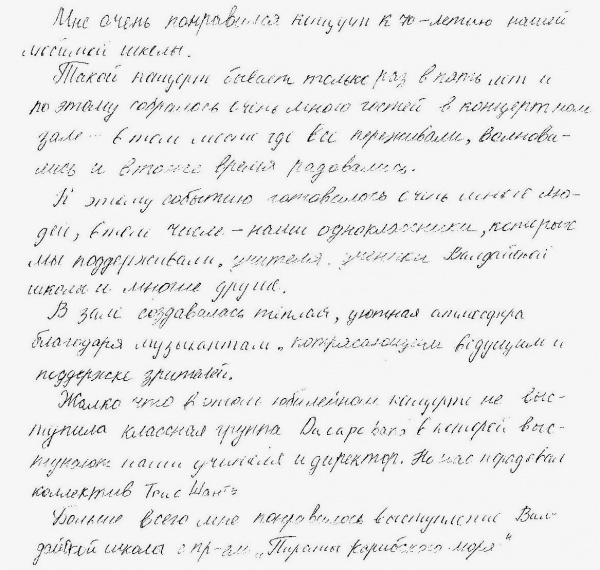 Мне очень понравился концерт к 70-летию нашей
любимой школы.
Такой концерт бывает только раз в пять лет и
поэтому собралось очень много гостей в концертном
зале - в том месте где все переживали, волнова-
лись и в тоже время радовались.
К этому событию готовилось очень много лю-
дей, в том числе - наши одноклассники, которых
мы поддерживали, учителя, ученики Валдайской
школы и многие другие.
В зале создавалась тёплая, уютная атмосфера
благодаря музыкантам, потрясающим ведущим и
поддержке зрителей.
Жалко что в этом юбилейном концерте не выс-
тупила классная группа в которой выс-
тупают наши учителя и директор. Но нас порадовал
коллектив
Больше всего мне понравилось выступление Вал-
дайской школы с пр-ем „Пираты Карибского моря"